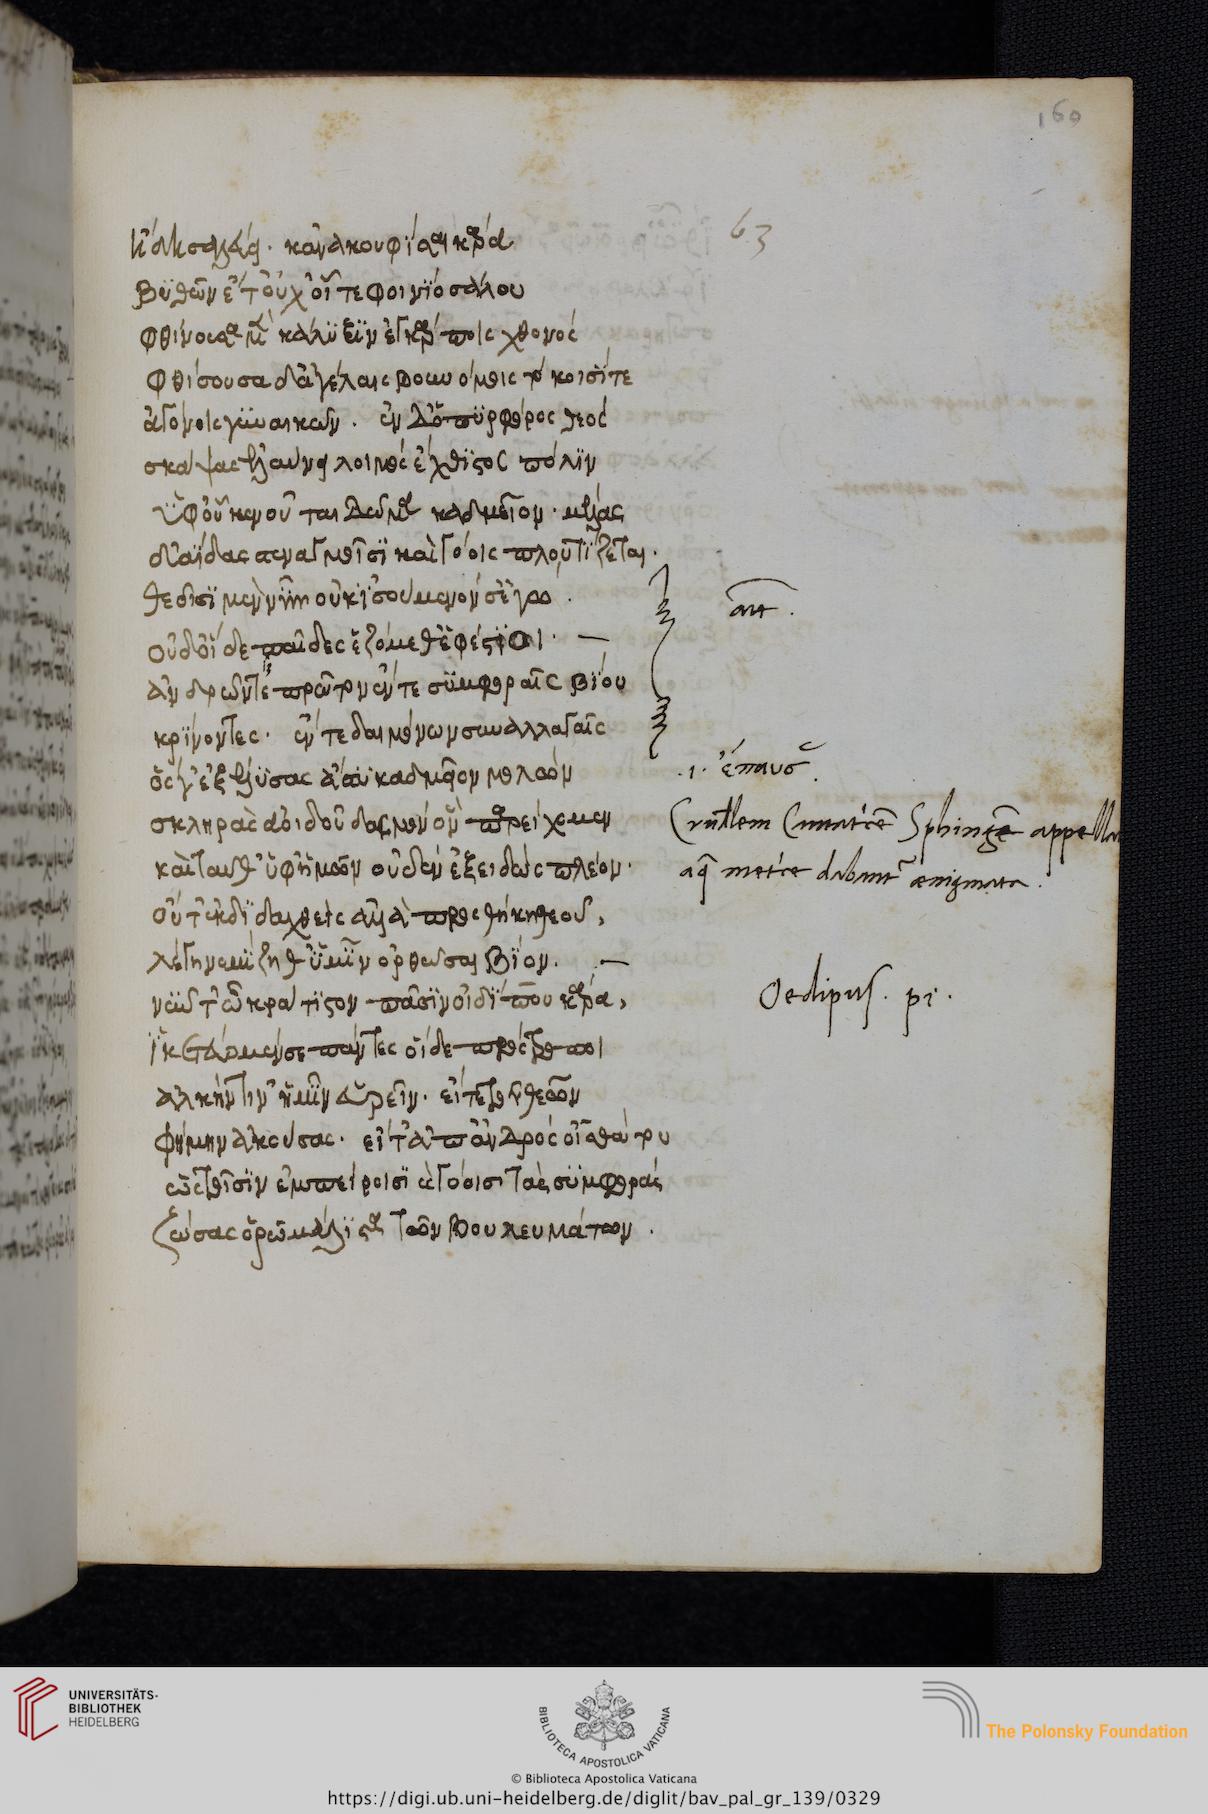 160
63
ἤδη σαλεύει. κἀνακουφίσαι κάρα
βυθῶν ἔτ' οὐχ οἵα τε φοινίου σάλου
φθίνουσα μὲν κάλυξιν ἐγκάρποις χθονός
φθίνουσα δ' ἀγέλαις βουνόμοις τόκοισί τε
ἀγόνοις γυναικῶν. ἐν δ' ὁ πυρφόρος θεός
σκήψας ἐλαύνει λοιμός ἔχθιστος πόλιν
ὑφ' οὗ κενοῦται δῶμα καδμεῖον. μέλας
δ' ἅϊδας στεναγμοῖσι καὶ γόοις πλουτίζεται.
θεοῖσι μὲν νῦν οὐκ ἰσούμενόν σ' ἐγὼ
οὐδ' οἵδε παῖδες ἑζόμεθ' ἐφέστιοι.
ἀνδρῶν δὲ πρῶτον ἔν τε συμφοραῖς βίου
κρίνοντες. ἔν τε δαιμόνων συναλλαγαῖς
ὅς γ' ἐξέλυσας ἄστυ καδμεῖον μολών
σκληρᾶς ἀοιδοῦ δασμόν ὃν παρείχομεν
καὶ ταῦθ' ὑφ' ἡμῶν οὐδέν ἐξειδὼς πλέον.
οὐδ' ἐκδιδαχθεὶς ἀλλὰ προσθήκῃ θεοῦ,
λέγῃ νομίζῃ θ' ἡμῖν ὀρθῶσαι βίον.
νῦν τ' ὦ κράτιστον πᾶσιν οἰδίπου κάρα,
ἱκετεύομέν σε πάντες οἵδε πρόστροποι
ἀλκήν τιν' ἡμῖν εὑρεῖν. εἴτε του θεῶν
φήμην ἀκούσας. εἴτ' ἀπ' ἀνδρός οἶσθά του
ὡς τοῖσιν ἐμπείροισι καὶ τὰς συμφοράς
ζώσας ὁρῶ μάλιστα τῶν βουλευμάτων.
ἀντ.
.ι. ἔπαυσ.
Crudelem Cantatricem Sphingem appella
metrice aenigmata.
Oedipus. pr.
UNIVERSITÄTS-
BIBLIOTHEK
HEIDELBERG
BIBLIOTECA APOSTOLICA VATICANA
© Biblioteca Apostolica Vaticana
The Polonsky Foundation
https://digi.ub.uni-heidelberg.de/diglit/bav_pal_gr_139/0329